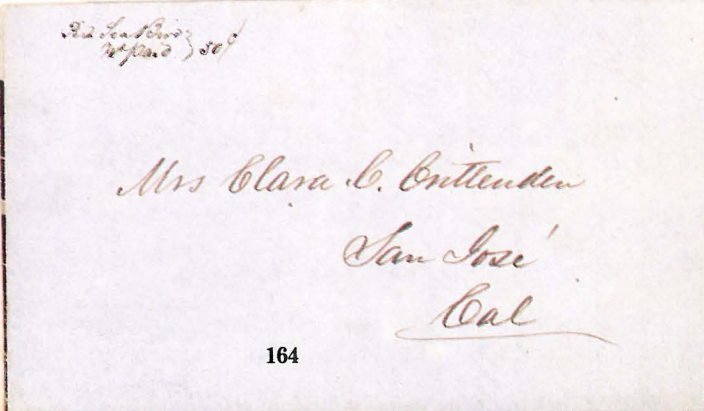 Paid 50¢
Mrs Clara C. Crittenden
San José
Cal
164